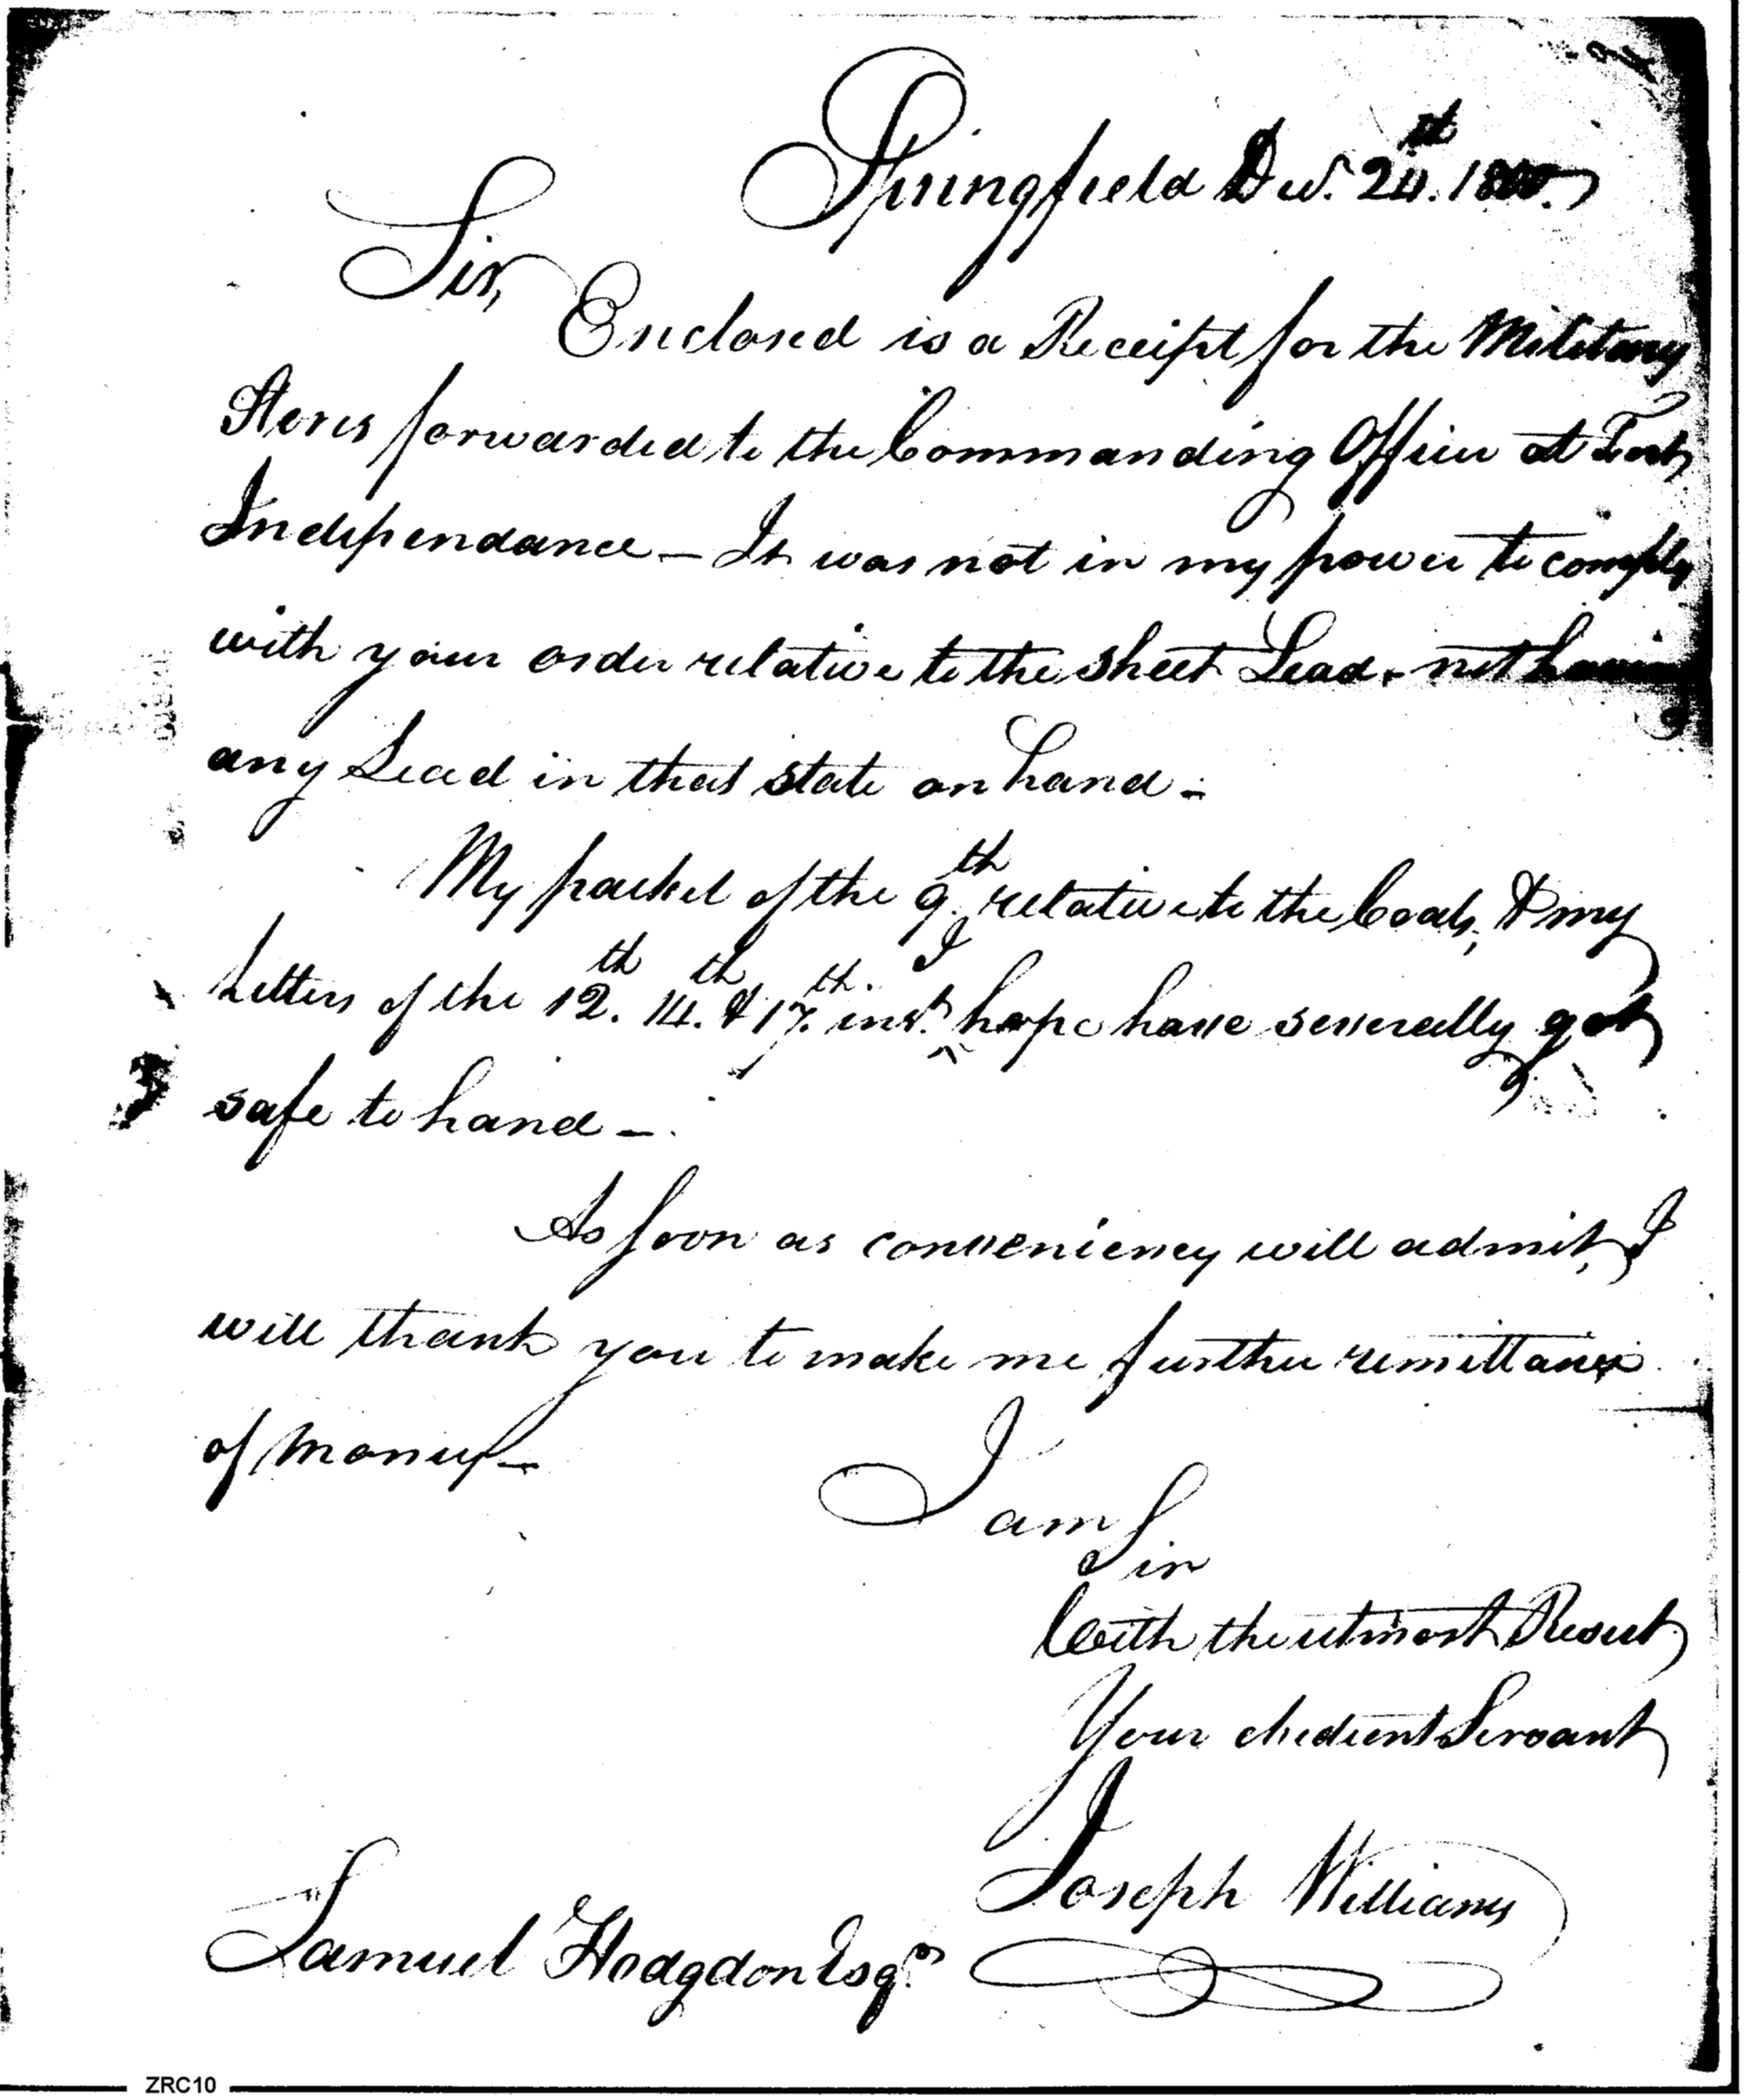 Springfield Decr. 24th. 1800.
Sir,
Enclosed is a Receipt for the Military
Stores forwarded to the Commanding Officer at Fort
Independance – It was not in my power to comply
with your order relative to the sheet Lead, not having
any Lead in that state on hand –
My packet of the 9th. relative to the Coats, & my
Letters of the 12th. 14th. & 17th. inst. I hope have severally got
safe to hand –
As soon as conveniency will admit, I
will thank you to make me further remittances
of Money –
I am
Sir
With the utmost Respect
Your obedient Servant
Joseph Williams
Samuel Hodgdon Esqr.
ZRC10